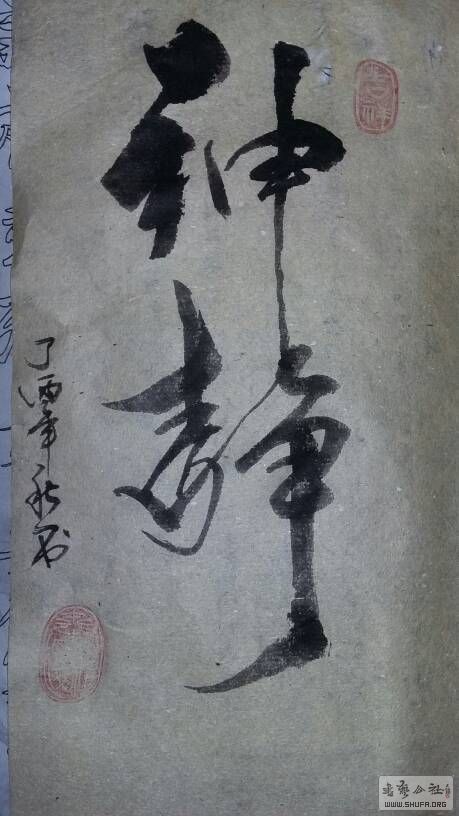 神静
丁酉年秋
吉祥
书艺公社
WWW.SHUFA.ORG